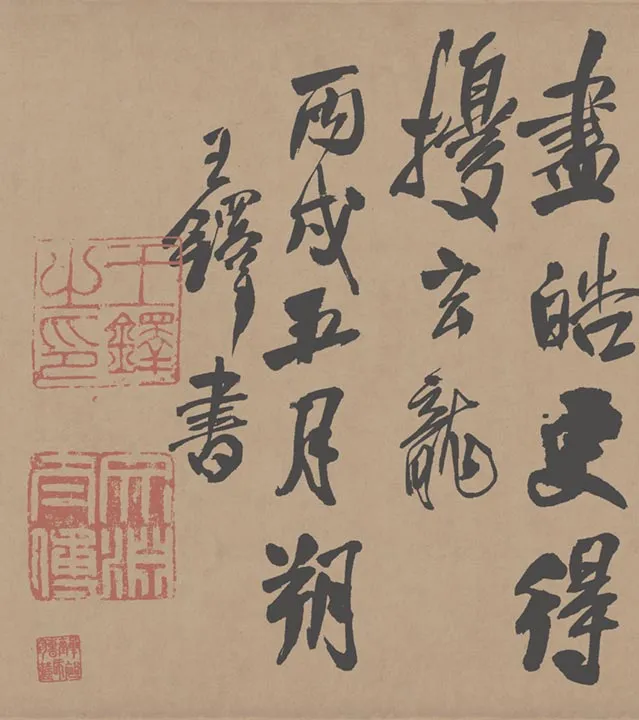 盡皓更得
擾玄龍
丙戌五月朔
王鐸書
王鐸之印